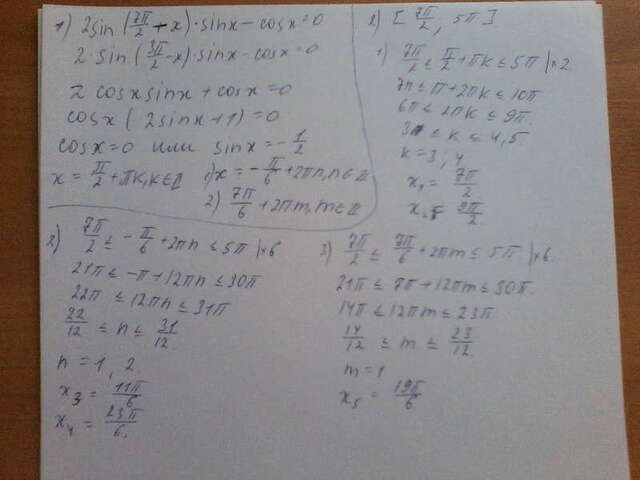 1) 2sin(7π/2 + x)·sinx − cosx = 0
2·sin(3π/2 − x)·sinx − cosx = 0
2 cosx sinx + cosx = 0
cosx(2sinx + 1) = 0
cosx = 0 или sinx = −1/2
x = π/2 + πk, k∈Z 1) x = −π/6 + 2πn, n∈Z
2) 7π/6 + 2πm, m∈Z
2) [7π/2, 5π]
1) 7π/2 ≤ π/2 + πk ≤ 5π |×2
7π ≤ π + 2πk ≤ 10π
6π ≤ 2πk ≤ 9π.
3 ≤ k ≤ 4,5
k = 3, 4
x₁ = 7π/2
x₂ = 9π/2.
2) 7π/2 ≤ −π/6 + 2πn ≤ 5π |×6
21π ≤ −π + 12πn ≤ 30π
22π ≤ 12πn ≤ 31π
22/12 ≤ n ≤ 31/12.
n = 1, 2.
x₃ = 11π/6
x₄ = 23π/6.
3) 7π/2 ≤ 7π/6 + 2πm ≤ 5π |×6
21π ≤ 7π + 12πm ≤ 30π.
14π ≤ 12πm ≤ 23π
14/12 ≤ m ≤ 23/12.
m = 1
x₅ = 19π/6